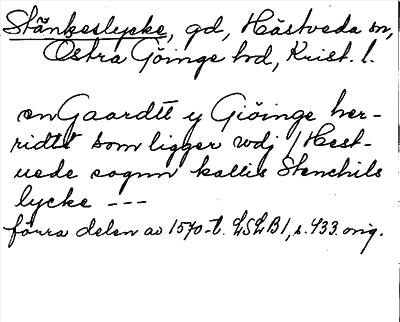 Stänkeslycke, gd, Hästveda sn,
Östra Göinge hd, Krist. l.
en Gaardtt y Giöinge her-
ridtt som ligger wdj / Hest-
uede sognn kallis Stenchils
lycke ---
förra delen av 1570-t. LSLB1, s. 433. orig.